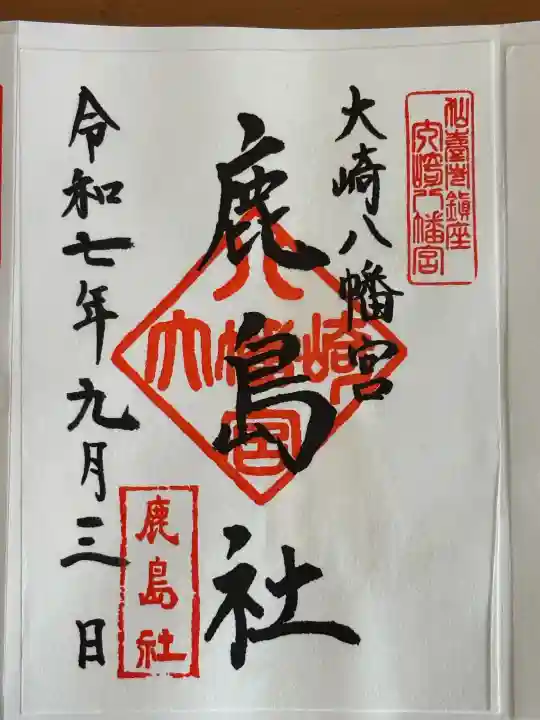 仙臺總鎮座
大崎八幡宮
大崎八幡宮
鹿島社
大崎八幡宮
鹿島社
令和七年九月三日